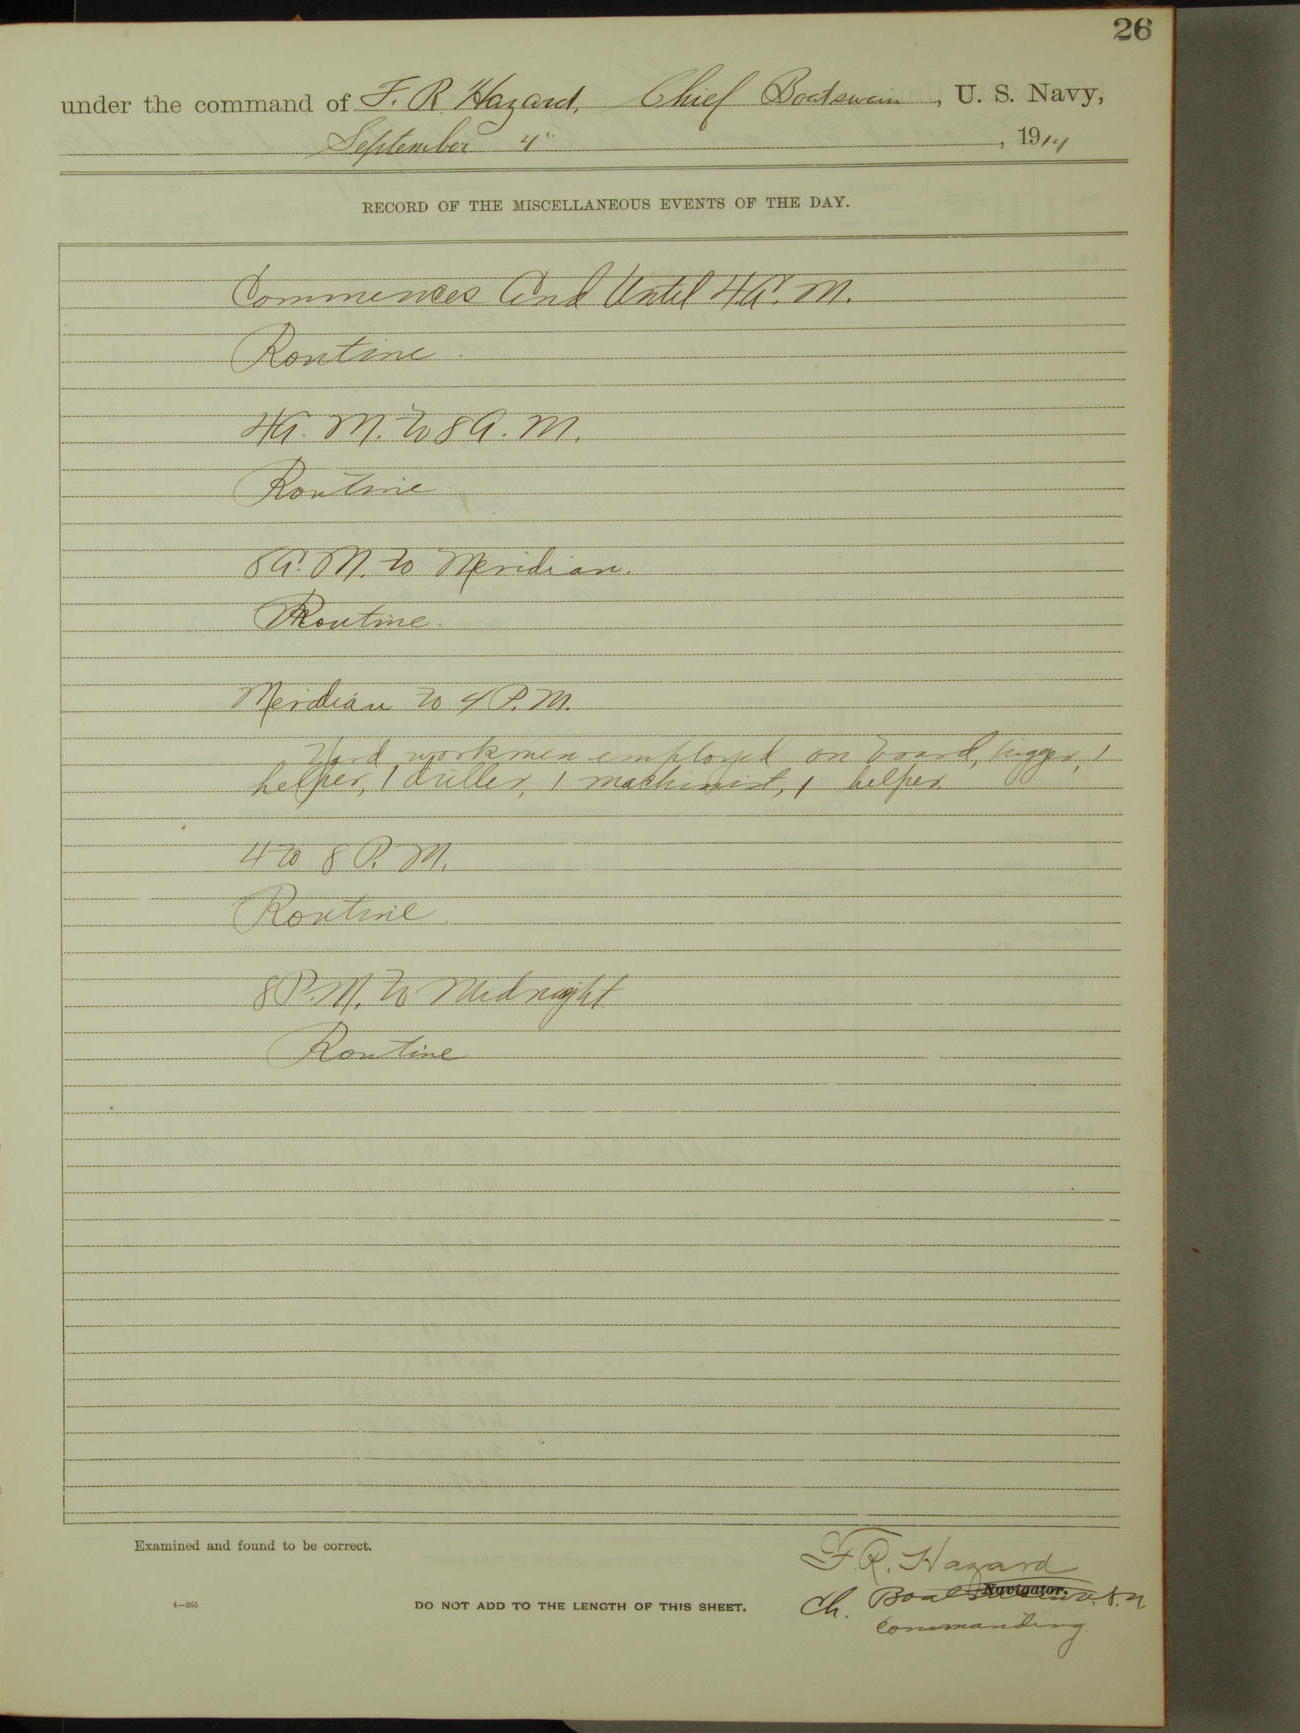 26
under the command of F. R. Hazard, Chief Boatswain, U. S. Navy,
September 4", 1914
RECORD OF THE MISCELLANEOUS EVENTS OF THE DAY.
Commences And Until 4 A. M.
Routine.
4 A. M. to 8 A. M.
Routine.
8 A. M. to Meridian.
Routine.
Meridian to 4 P. M.
Yard workmen employed on board, 1 rigger, 1
helper, 1 driller, 1 machinist, 1 helper.
4 to 8 P. M.
Routine.
8 P. M. to Midnight
Routine
Examined and found to be correct.
F. R. Hazard
Navigator.
Ch. Boatswain U. S. N
Commanding.
4—265
DO NOT ADD TO THE LENGTH OF THIS SHEET.